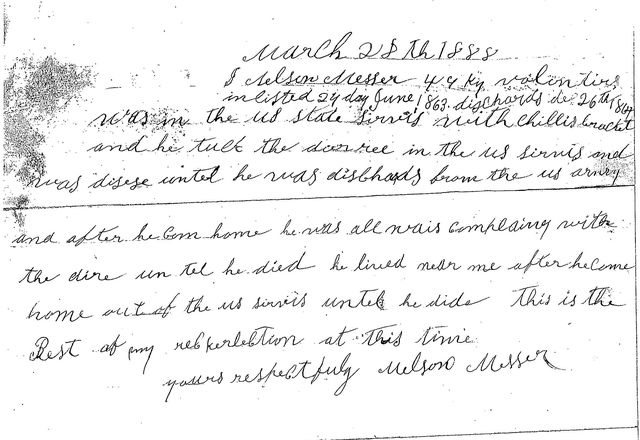 March 28th 1888
I Nelson Messer 49 Ky volintirs
inlisted 24 day June 1863 dischards de 26th 1864
was in the us state sirvis with Chillis Brocket
and he tuck the diarree in the us sirvis and
was disese untel he was disbhards from the us army
and after he Com home he was all wais Complainy with
the dire un tel he died he lived near me after he Come
home out of the us sirvis untel he dide this is the
Best of my reckerlection at this time
yours respectfuly Nelson Messer